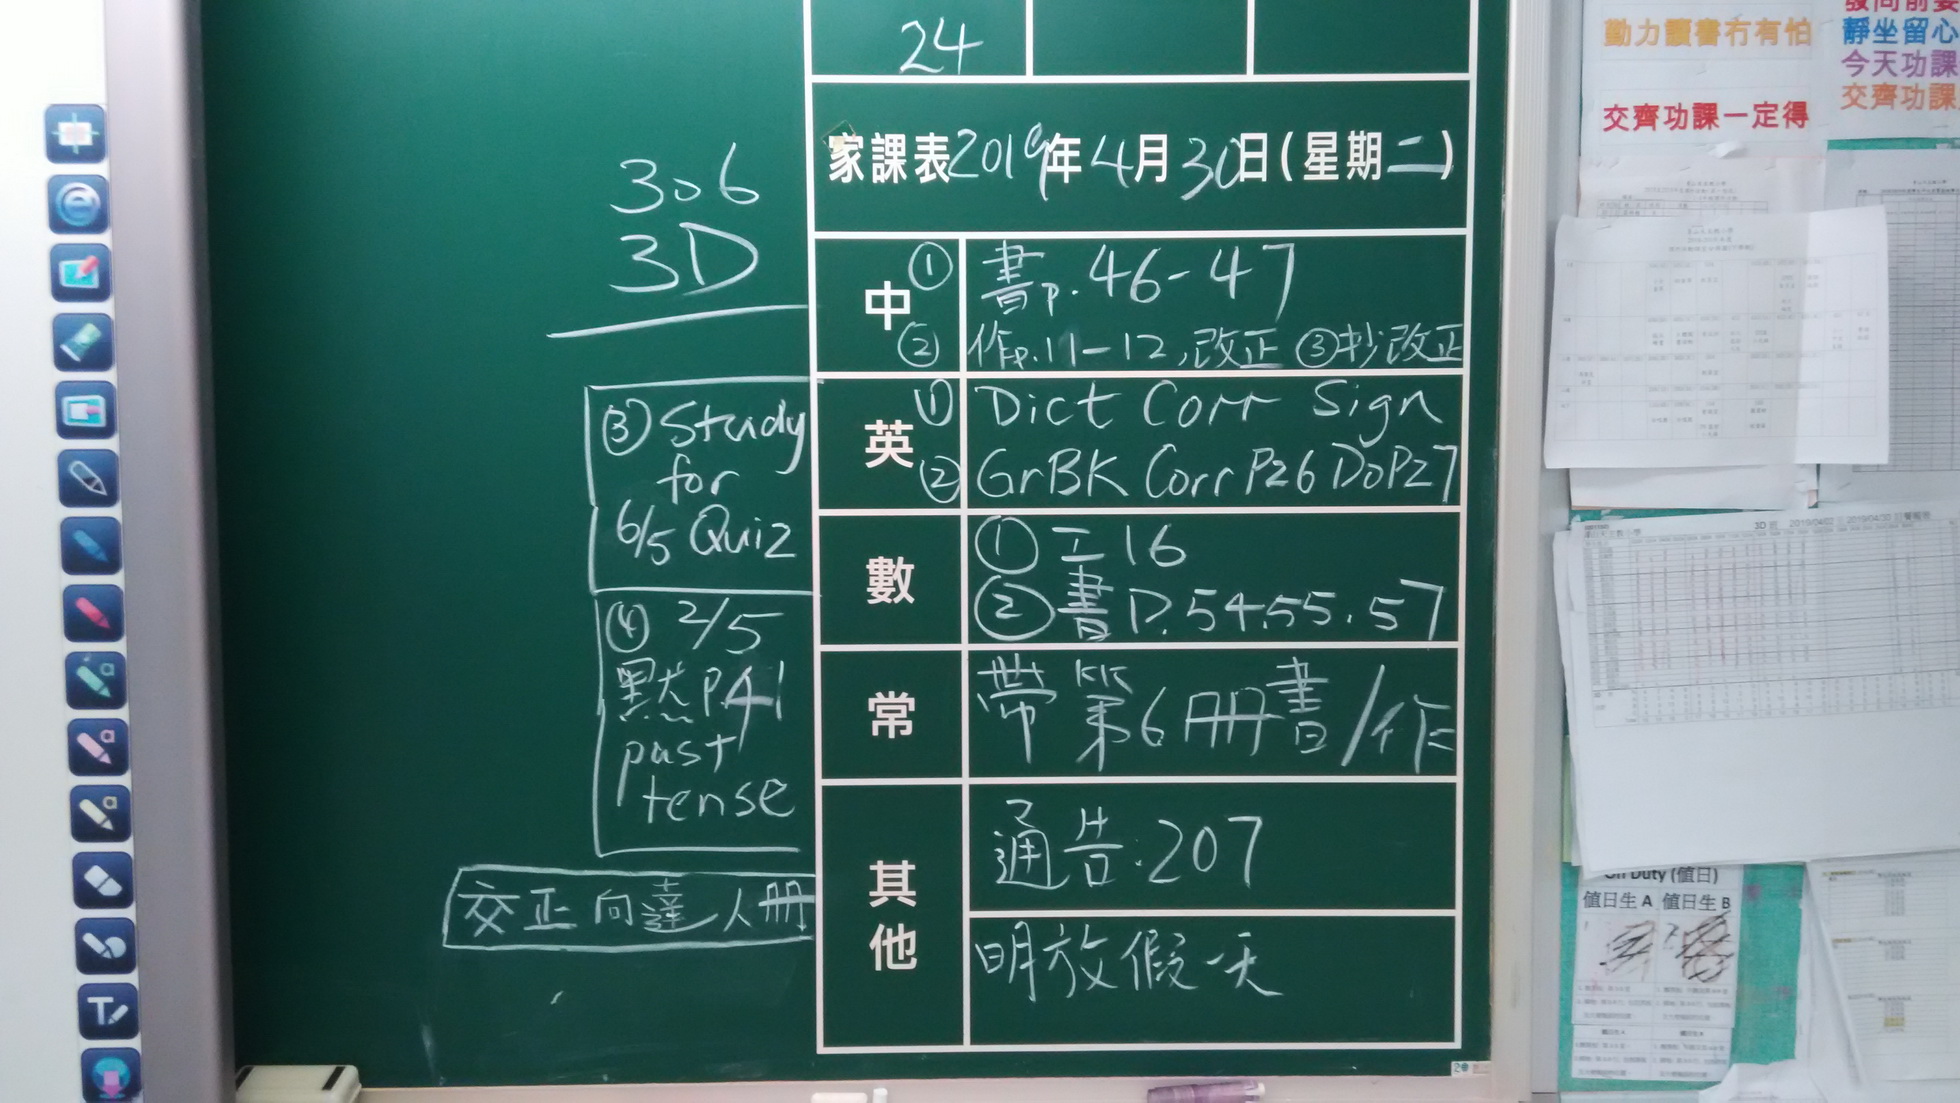 24
家課表2019年4月30日(星期二)
306
3D
中
① 書p.46-47
② 作p.11-12,改正 ③抄改正
英
① Dict Corr Sign
② GrBK Corr P26 Do P27
③ Study
for
6/5 Quiz
④ 2/5
默P.41
past
tense
數
① 工16
② 書P.54.55.57
常
帶第6冊書/作
其他
通告:207
明放假一天
交正向達人冊
T
勤力讀書冇有怕
交齊功課一定得
發問前要
靜坐留心
今天功課
交齊功課
On Duty (值日)
值日生 A 值日生 B